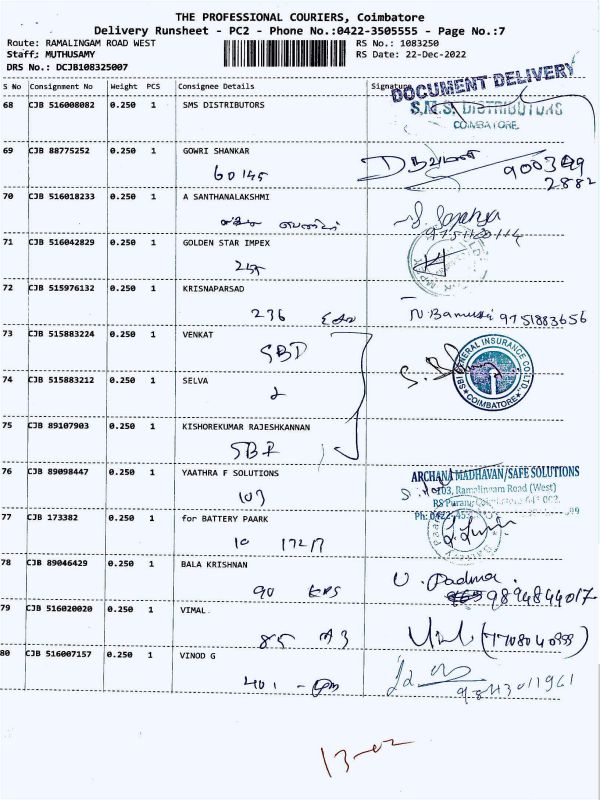 THE PROFESSIONAL COURIERS, Coimbatore
Delivery Runsheet - PC2 - Phone No.:0422-3505555 - Page No.:7
Route: RAMALINGAM ROAD WEST RS No.: 1083250
Staff: MUTHUSAMY RS Date: 22-Dec-2022
DRS No.: DCJB108325007
S No Consignment No Weight PCS Consignee Details Signature
DOCUMENT DELIVERY
68 CJB 516008082 0.250 1 SMS DISTRIBUTORS
S.M.S. DISTRIBUTORS
COIMBATORE.
69 CJB 88775252 0.250 1 GOWRI SHANKAR
60145
2882
70 CJB 516018233 0.250 1 A SANTHANALAKSHMI
9751120114
71 CJB 516042829 0.250 1 GOLDEN STAR IMPEX
72 CJB 515976132 0.250 1 KRISNAPARSAD
236 9751883656
73 CJB 515883224 0.250 1 VENKAT
SBI GENERAL INSURANCE CO.LTD.
COIMBATORE
74 CJB 515883212 0.250 1 SELVA
75 CJB 89107903 0.250 1 KISHOREKUMAR RAJESHKANNAN
76 CJB 89098447 0.250 1 YAATHRA F SOLUTIONS
ARCHANA MADHAVAN/SAFE SOLUTIONS
103, Ramalingam Road (West)
103 RS Puram,
77 CJB 173382 0.250 1 for BATTERY PAARK
10
78 CJB 89046429 0.250 1 BALA KRISHNAN
U. Padma.
90 9894844017
79 CJB 516020020 0.250 1 VIMAL
85 A3
80 CJB 516007157 0.250 1 VINOD G
401
13-02